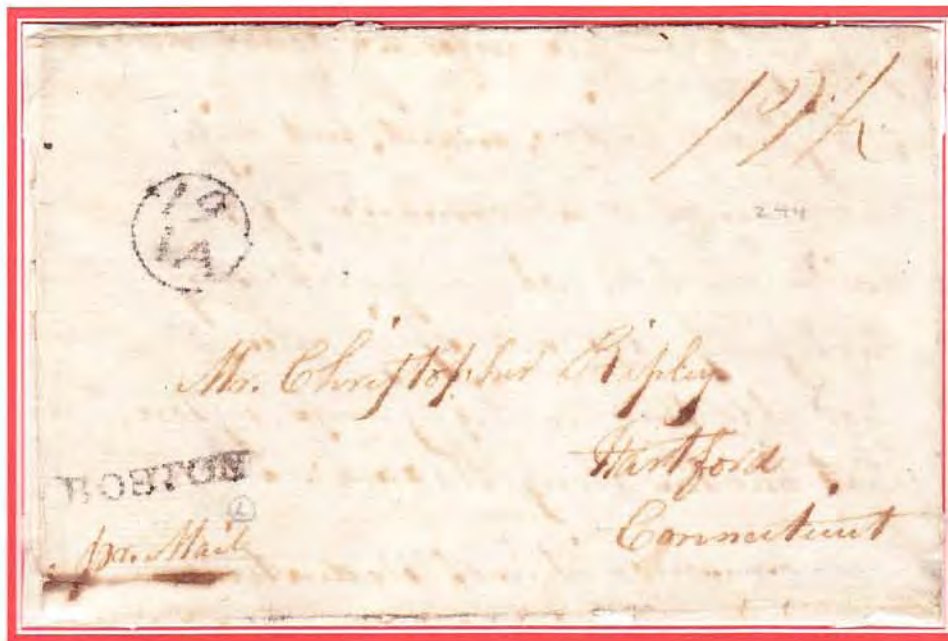 12½
244
19
IA
Mr. Christopher Ripley
Hartford
BOSTON
Connecticut
pr. Mail